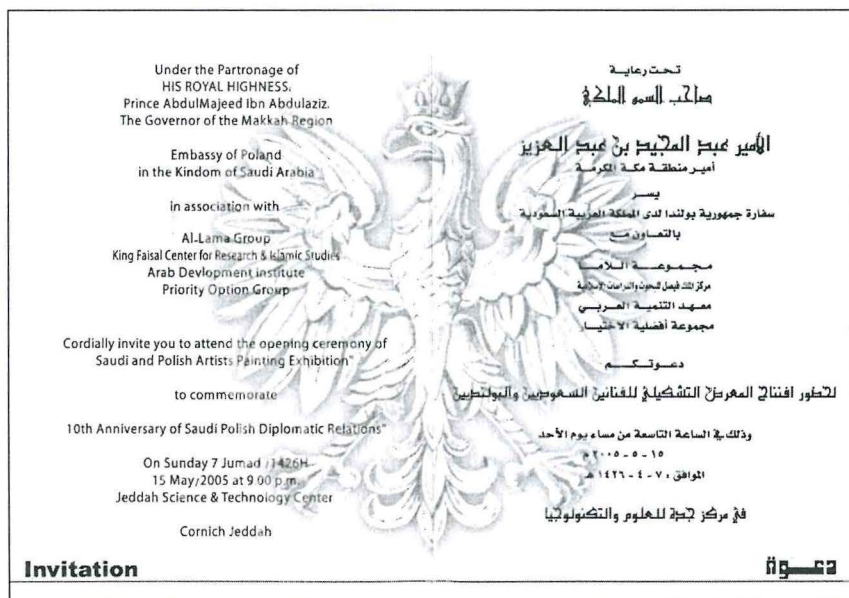 Under the Partronage of
HIS ROYAL HIGHNESS,
Prince AbdulMajeed Ibn Abdulaziz.
The Governor of the Makkah Region
Embassy of Poland
in the Kindom of Saudi Arabia
in association with
Al-Lama Group
King Faisal Center for Research & Islamic Studies
Arab Devlopment institute
Priority Option Group
Cordially invite you to attend the opening ceremony of
Saudi and Polish Artists Painting Exhibition"
to commemorate
10th Anniversary of Saudi Polish Diplomatic Relations"
On Sunday 7 Jumad /1426H
15 May/2005 at 9.00 p.m.
Jeddah Science & Technology Center
Cornich Jeddah
Invitation
تحت رعاية
صاحب السمو الملكي
الأمير عبد المجيد بن عبد العزيز
أمير منطقة مكة المكرمة
يسر
سفارة جمهورية بولندا لدى المملكة العربية السعودية
بالتعاون مع
مجموعة اللاما
مركز الملك فيصل للبحوث والدراسات الإسلامية
معهد التنمية العربي
مجموعة أفضلية الاختيار
دعوتكم
لحضور افتتاح المعرض التشكيلي للفنانين السعوديين والبولنديين
وذلك في الساعة التاسعة من مساء يوم الأحد
١٥ - ٥ - ٢٠٠٥ م
الموافق : ٧ - ٤ - ١٤٢٦ هـ
في مركز جدة للعلوم والتكنولوجيا
دعوة